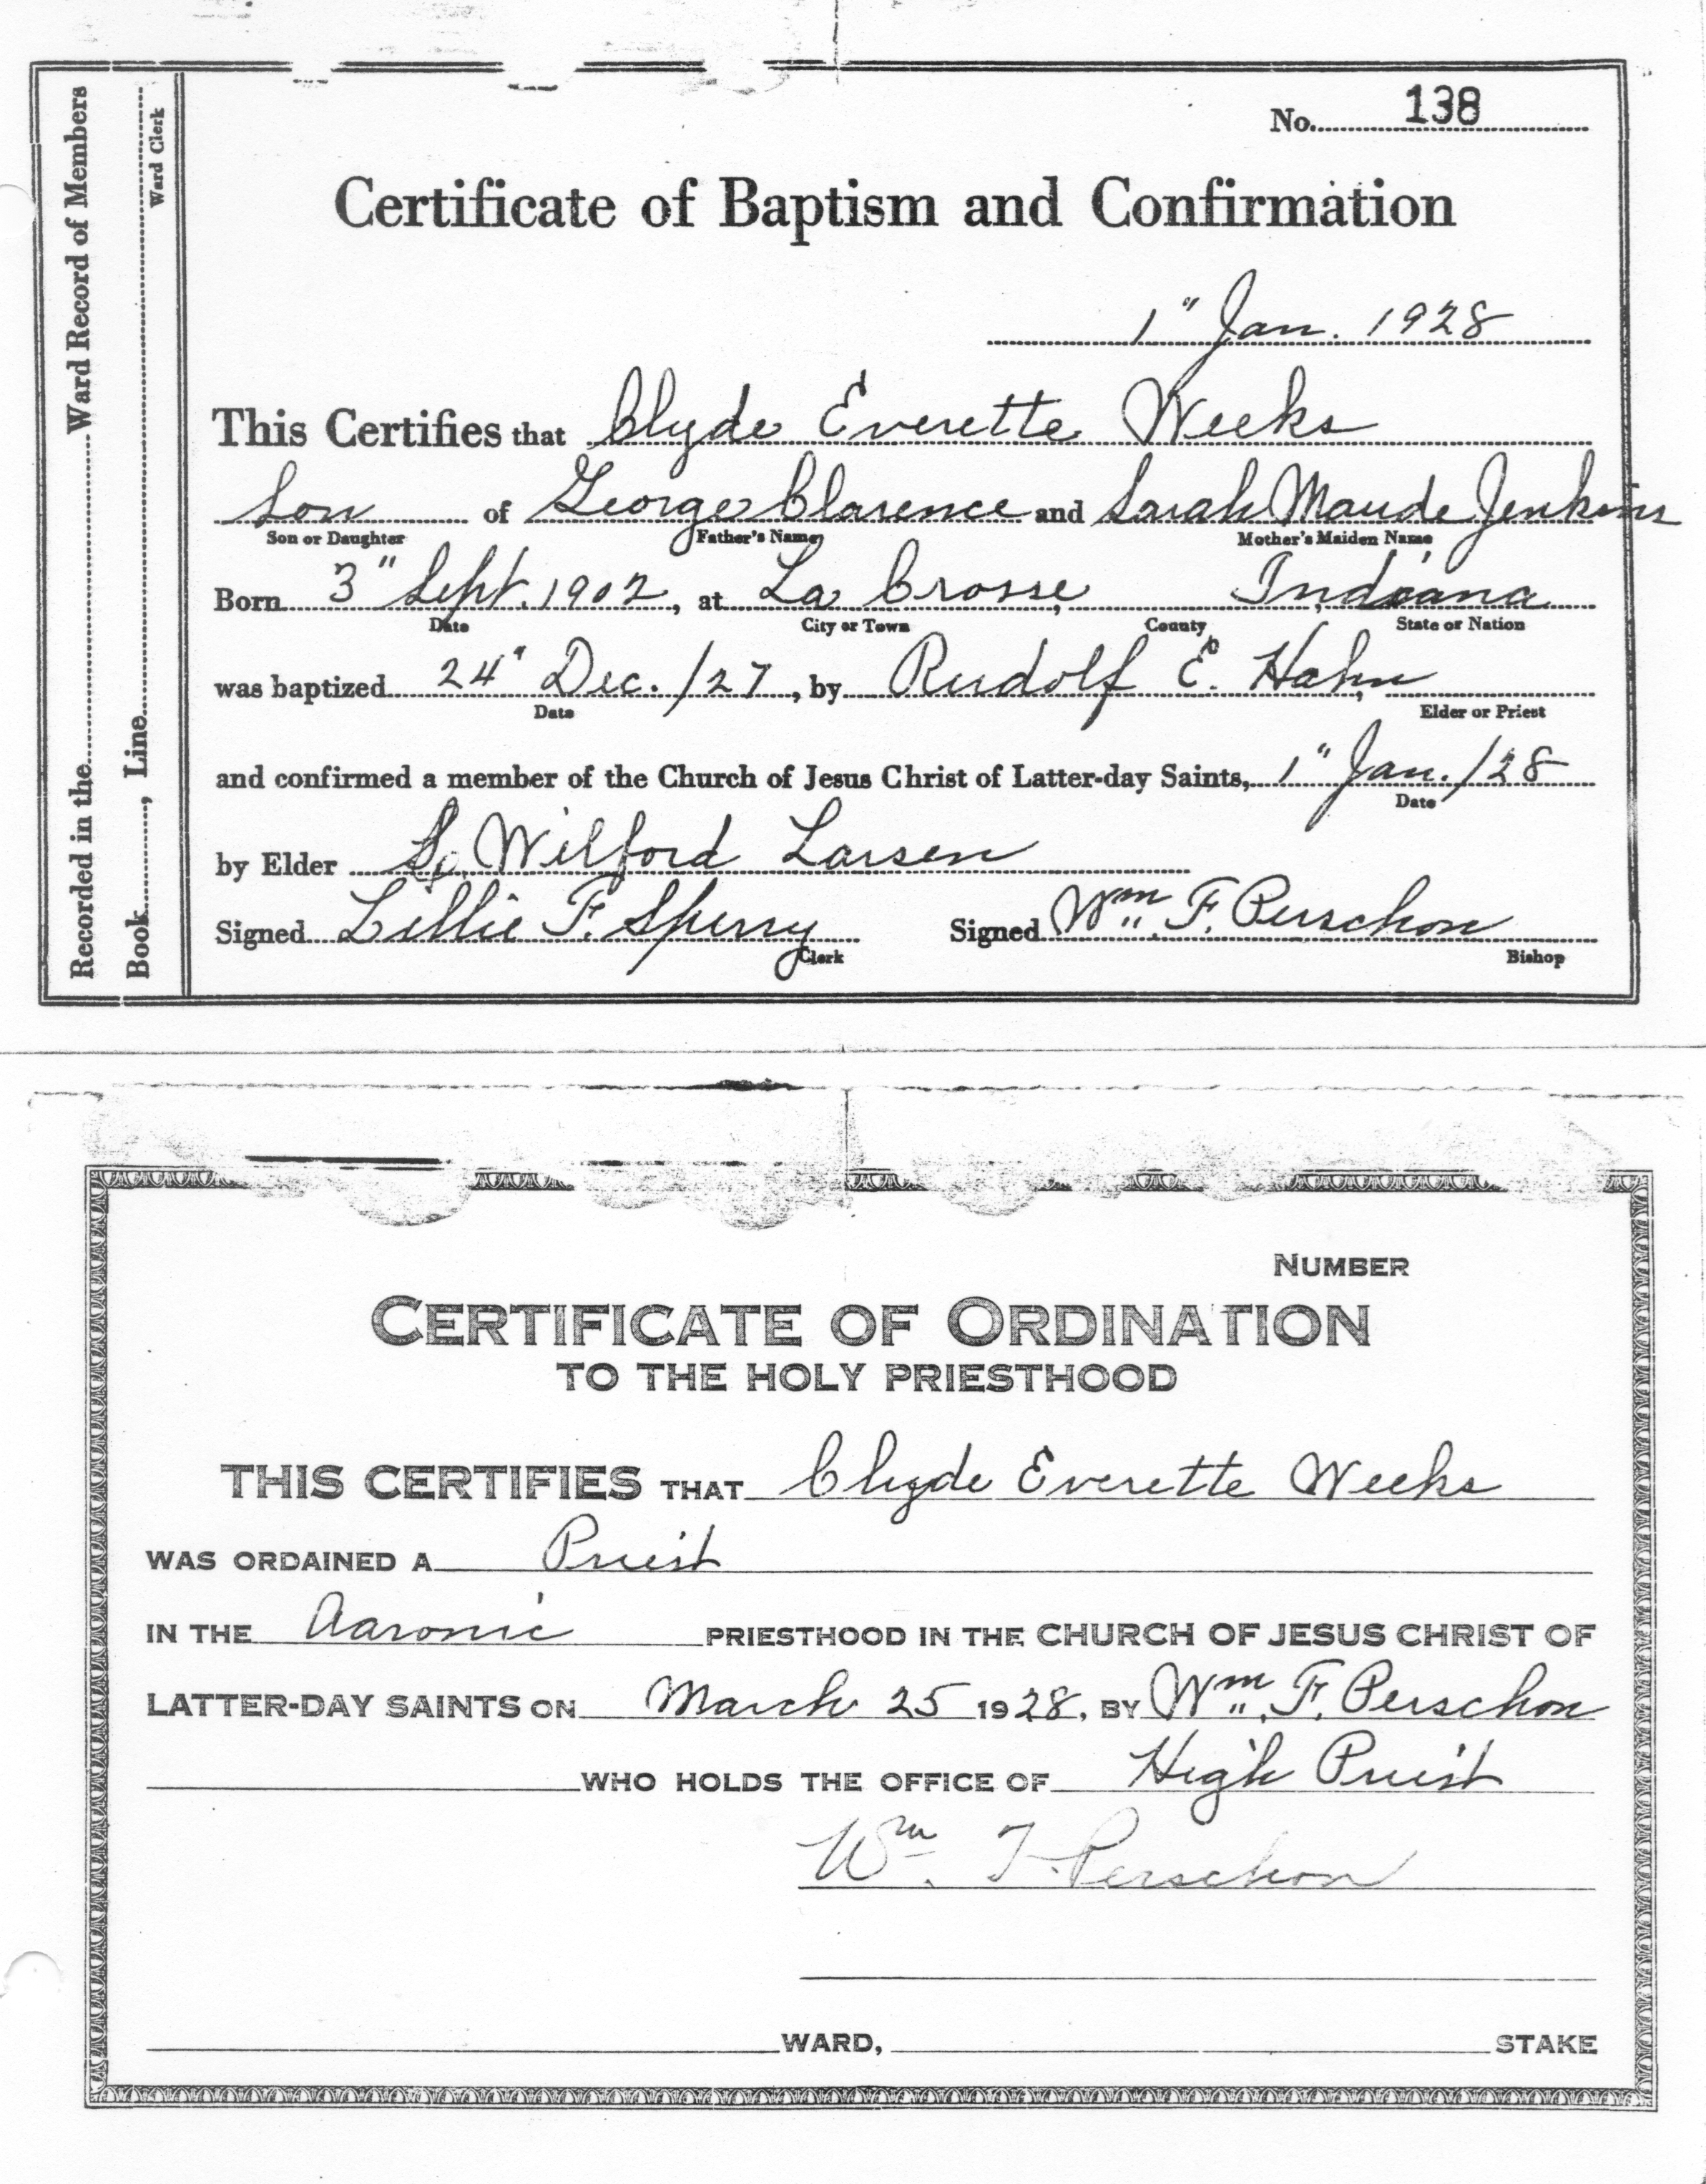 No. 138
Certificate of Baptism and Confirmation
1" Jan. 1928
This Certifies that Clyde Everette Weeks
Son of George Clarence and Sarah Maude Jenkins
Son or Daughter Father's Name Mother's Maiden Name
Born 3" Sept. 1902, at La Crosse, Indiana
Date City or Town County State or Nation
was baptized 24" Dec. /27, by Rudolf E. Hahn,
Date Elder or Priest
and confirmed a member of the Church of Jesus Christ of Latter-day Saints, 1" Jan. /28
Date
by Elder Wilford Larsen
Signed Lillie F. Sperry Signed Wm. F. Perschon
Clerk Bishop
Recorded in the Ward Record of Members
Book, Line
Ward Clerk
NUMBER
CERTIFICATE OF ORDINATION
TO THE HOLY PRIESTHOOD
THIS CERTIFIES THAT Clyde Everette Weeks
WAS ORDAINED A Priest
IN THE Aaronic PRIESTHOOD IN THE CHURCH OF JESUS CHRIST OF
LATTER-DAY SAINTS ON March 25 1928, BY Wm. F. Perschon
WHO HOLDS THE OFFICE OF High Priest
Wm. F. Perschon
WARD, STAKE